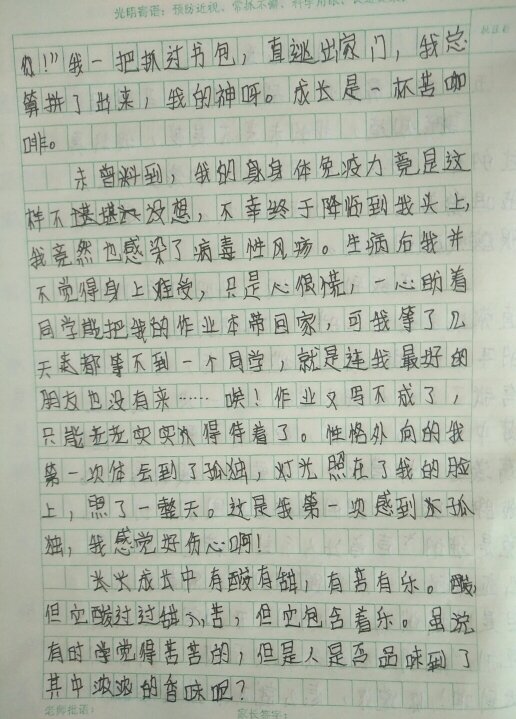 光明寄语：预防近视、常抓不懈、科学用眼、
你！”我一把抓过书包，直逃出家门，我总
算拼了出来，我的神呀。成长是一杯苦咖
啡。
未曾料到，我的身体免疫力竟是这
样不堪没想，不幸终于降临到我头上，
我竟然也感染了病毒性风疹。生病后我并
不觉得身上难受，只是心很慌，一心盼着
同学能把我的作业本带回家，可我等了几
天都等不到一个同学，就是连我最好的
朋友也没有来……唉！作业又写不成了，
只能老老实实地得待着了。性格外向的我
第一次体会到了孤独，灯光照在了我的脸
上，照了一整天。这是我第一次感到孤
独，我感觉好伤心啊！
成长中有酸有甜，有苦有乐。
但它酸过过甜、苦，但它包含着乐。虽说
有时觉得苦苦的，但是人是否品味到了
其中浓浓的香味呢？
老师批语：
家长签字：